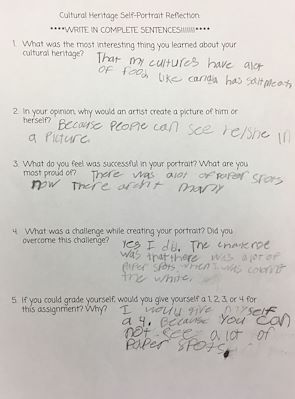 Cultural Heritage Self-Portrait Reflection
****WRITE IN COMPLETE SENTENCES!!!!!!!****
1. What was the most interesting thing you learned about your
cultural heritage? That my cultures have alot
of food, like canada has saltmeats
2. In your opinion, why would an artist create a picture of him or
herself? Because People can see he/she in
a Picture.
3. What do you feel was successful in your portrait? What are you
most proud of? There was alot of Paper spots
now there arent many
4. What was a challenge while creating your portrait? Did you
overcome this challenge? Yes I did. The
was that there was a lot of
Paper spots when I was coloring
the white.
5. If you could grade yourself, would you give yourself a 1, 2, 3, or 4 for
this assignment? Why? I would give myself
a 4. Because You can
not see a lot of
Paper spots.